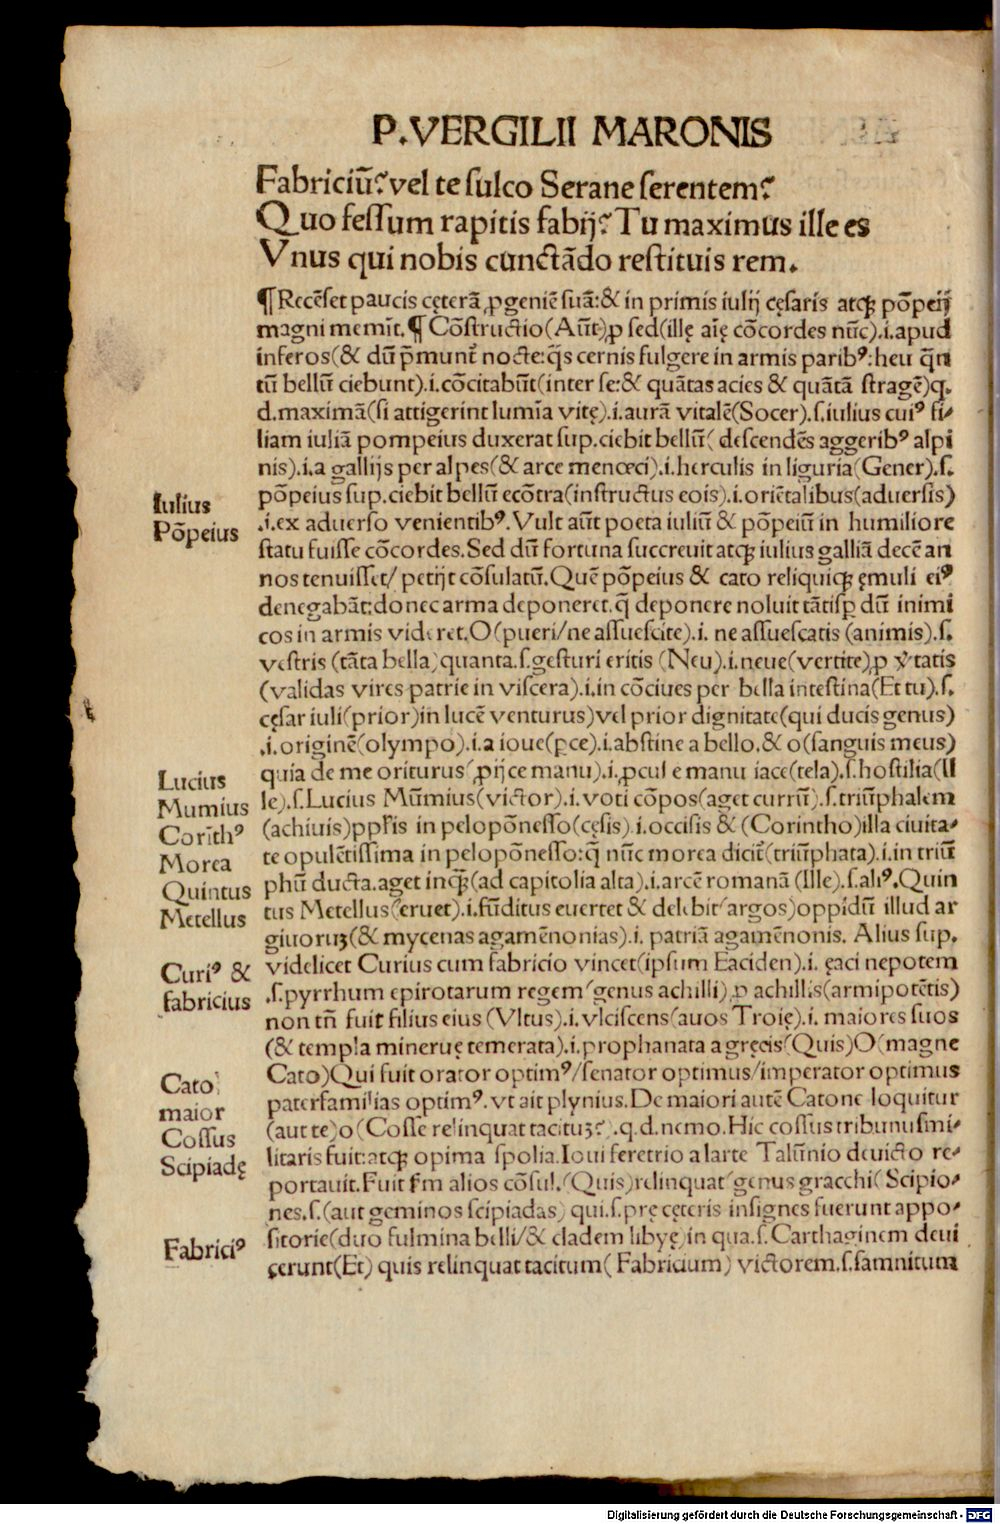 P.VERGILII MARONIS
Fabriciū?vel te sulco Serane serentem?
Quo fessum rapitis fabij?Tu maximus ille es
Vnus qui nobis cunctādo restituis rem.
¶Recēset paucis cęterā ꝓgeniē suā:& in primis iulij cęsaris atqꝫ pōpeij
magni memīt.¶Cōstructio(Aūt)ꝓ sed(illę aīę cōcordes nūc).i.apud
inferos(& dū p̄munt̄ nocte:q̄s cernis fulgere in armis paribꝰ:heu q̄n
tū bellū ciebunt).i.cōcitabūt(inter se:& quātas acies & quātā stragē)q.
d.maximā(si attigerint lumīa vitę).i.aurā vitalē(Socer).s.iulius cuiꝰ fi-
liam iuliā pompeius duxerat sup.ciebit bellū(descendēs aggeribꝰ alpi
nis).i.a gallijs per alpes(& arce menœci).i.herculis in liguria(Gener).s.
pōpeius sup.ciebit bellū ecōtra(instructus eois).i.oriētalibus(aduersis)
.i.ex aduerso venientibꝰ.Vult aūt poeta iuliū & pōpeiū in humiliore
statu fuisse cōcordes.Sed dū fortuna succreuit atqꝫ iulius galliā decē an
nos tenuisset/petijt cōsulatū.Quē pōpeius & cato reliquiqꝫ ęmuli eiꝰ
denegabāt:donec arma deponeret.q̄ deponere noluit tātisꝑ dū inimi
cos in armis videret.O(pueri/ne assuescite).i. ne assuescatis (animis).s.
vestris (tāta bella)quanta.s.gesturi eritis (Neu).i.neue(vertite)ꝓ v̓tatis
(validas vires patrie in viscera).i.in cōciues per bella intestina(Et tu).s.
cęsar iuli(prior)in lucē venturus)vel prior dignitate(qui ducis genus)
.i.originē(olympo).i.a ioue(ꝑce).i.abstine a bello.& o(sanguis meus)
quia de me oriturus(ꝓijce manu).i.ꝓcul e manu iace(tela).s.hostilia(Il
le).s.Lucius Mūmius(victor).i.voti cōpos(aget currū).s.triūphalem
(achiuis)pp̄lis in pelopōnesso(cęsis).i.occisis & (Corintho)illa ciuita-
te opulētissima in pelopōnesso:q̄ nūc morea dicit̄(triūphata).i.in triū
phū ducta.aget inqꝫ(ad capitolia alta).i.arcē romanā (Ille).s.aliꝰ.Quin
tus Metellus(eruet).i.fūditus euertet & delebit(argos)oppidū illud ar
giuoruꝫ(& mycenas agamēnonias).i. patriā agamēnonis. Alius sup.
videlicet Curius cum fabricio vincet(ipsum Eaciden).i. ęaci nepotem
.s.pyrrhum epirotarum regem(genus achilli)ꝓ achillis(armipotētis)
non tn̄ fuit filius eius (Vltus).i.vlciscens(auos Troię).i. maiores suos
(& templa mineruę temerata).i.prophanata a gręcis(Quis)O(magne
Cato)Qui fuit orator optimꝰ/senator optimus/imperator optimus
paterfamilias optimꝰ.vt ait plynius.De maiori autē Catone loquitur
(aut te)o(Cosse relinquat tacituꝫ?).q.d.nemo.Hic cossus tribunusmi-
litaris fuit:atqꝫ opima spolia.Ioui feretrio a larte Talūnio deuicto re-
portauit.Fuit s̄m alios cōsul.(Quis)relinquat(genus gracchi(Scipio-
nes.s.(aut geminos scipiadas) qui.s.prę cęteris insignes fuerunt appo-
sitorie(duo fulmina belli/& cladem libyę)in qua.s.Carthaginem deui
cerunt(Et) quis relinquat tacitum(Fabricium) victorem.s.samnitum
Iulius
Pōpeius
Lucius
Mumius
Corīthꝰ
Morea
Quintus
Metellus
Curiꝰ &
fabricius
Cato
maior
Cossus
Scipiadę
Fabriciꝰ
Digitalisierung gefördert durch die Deutsche Forschungsgemeinschaft - DFG